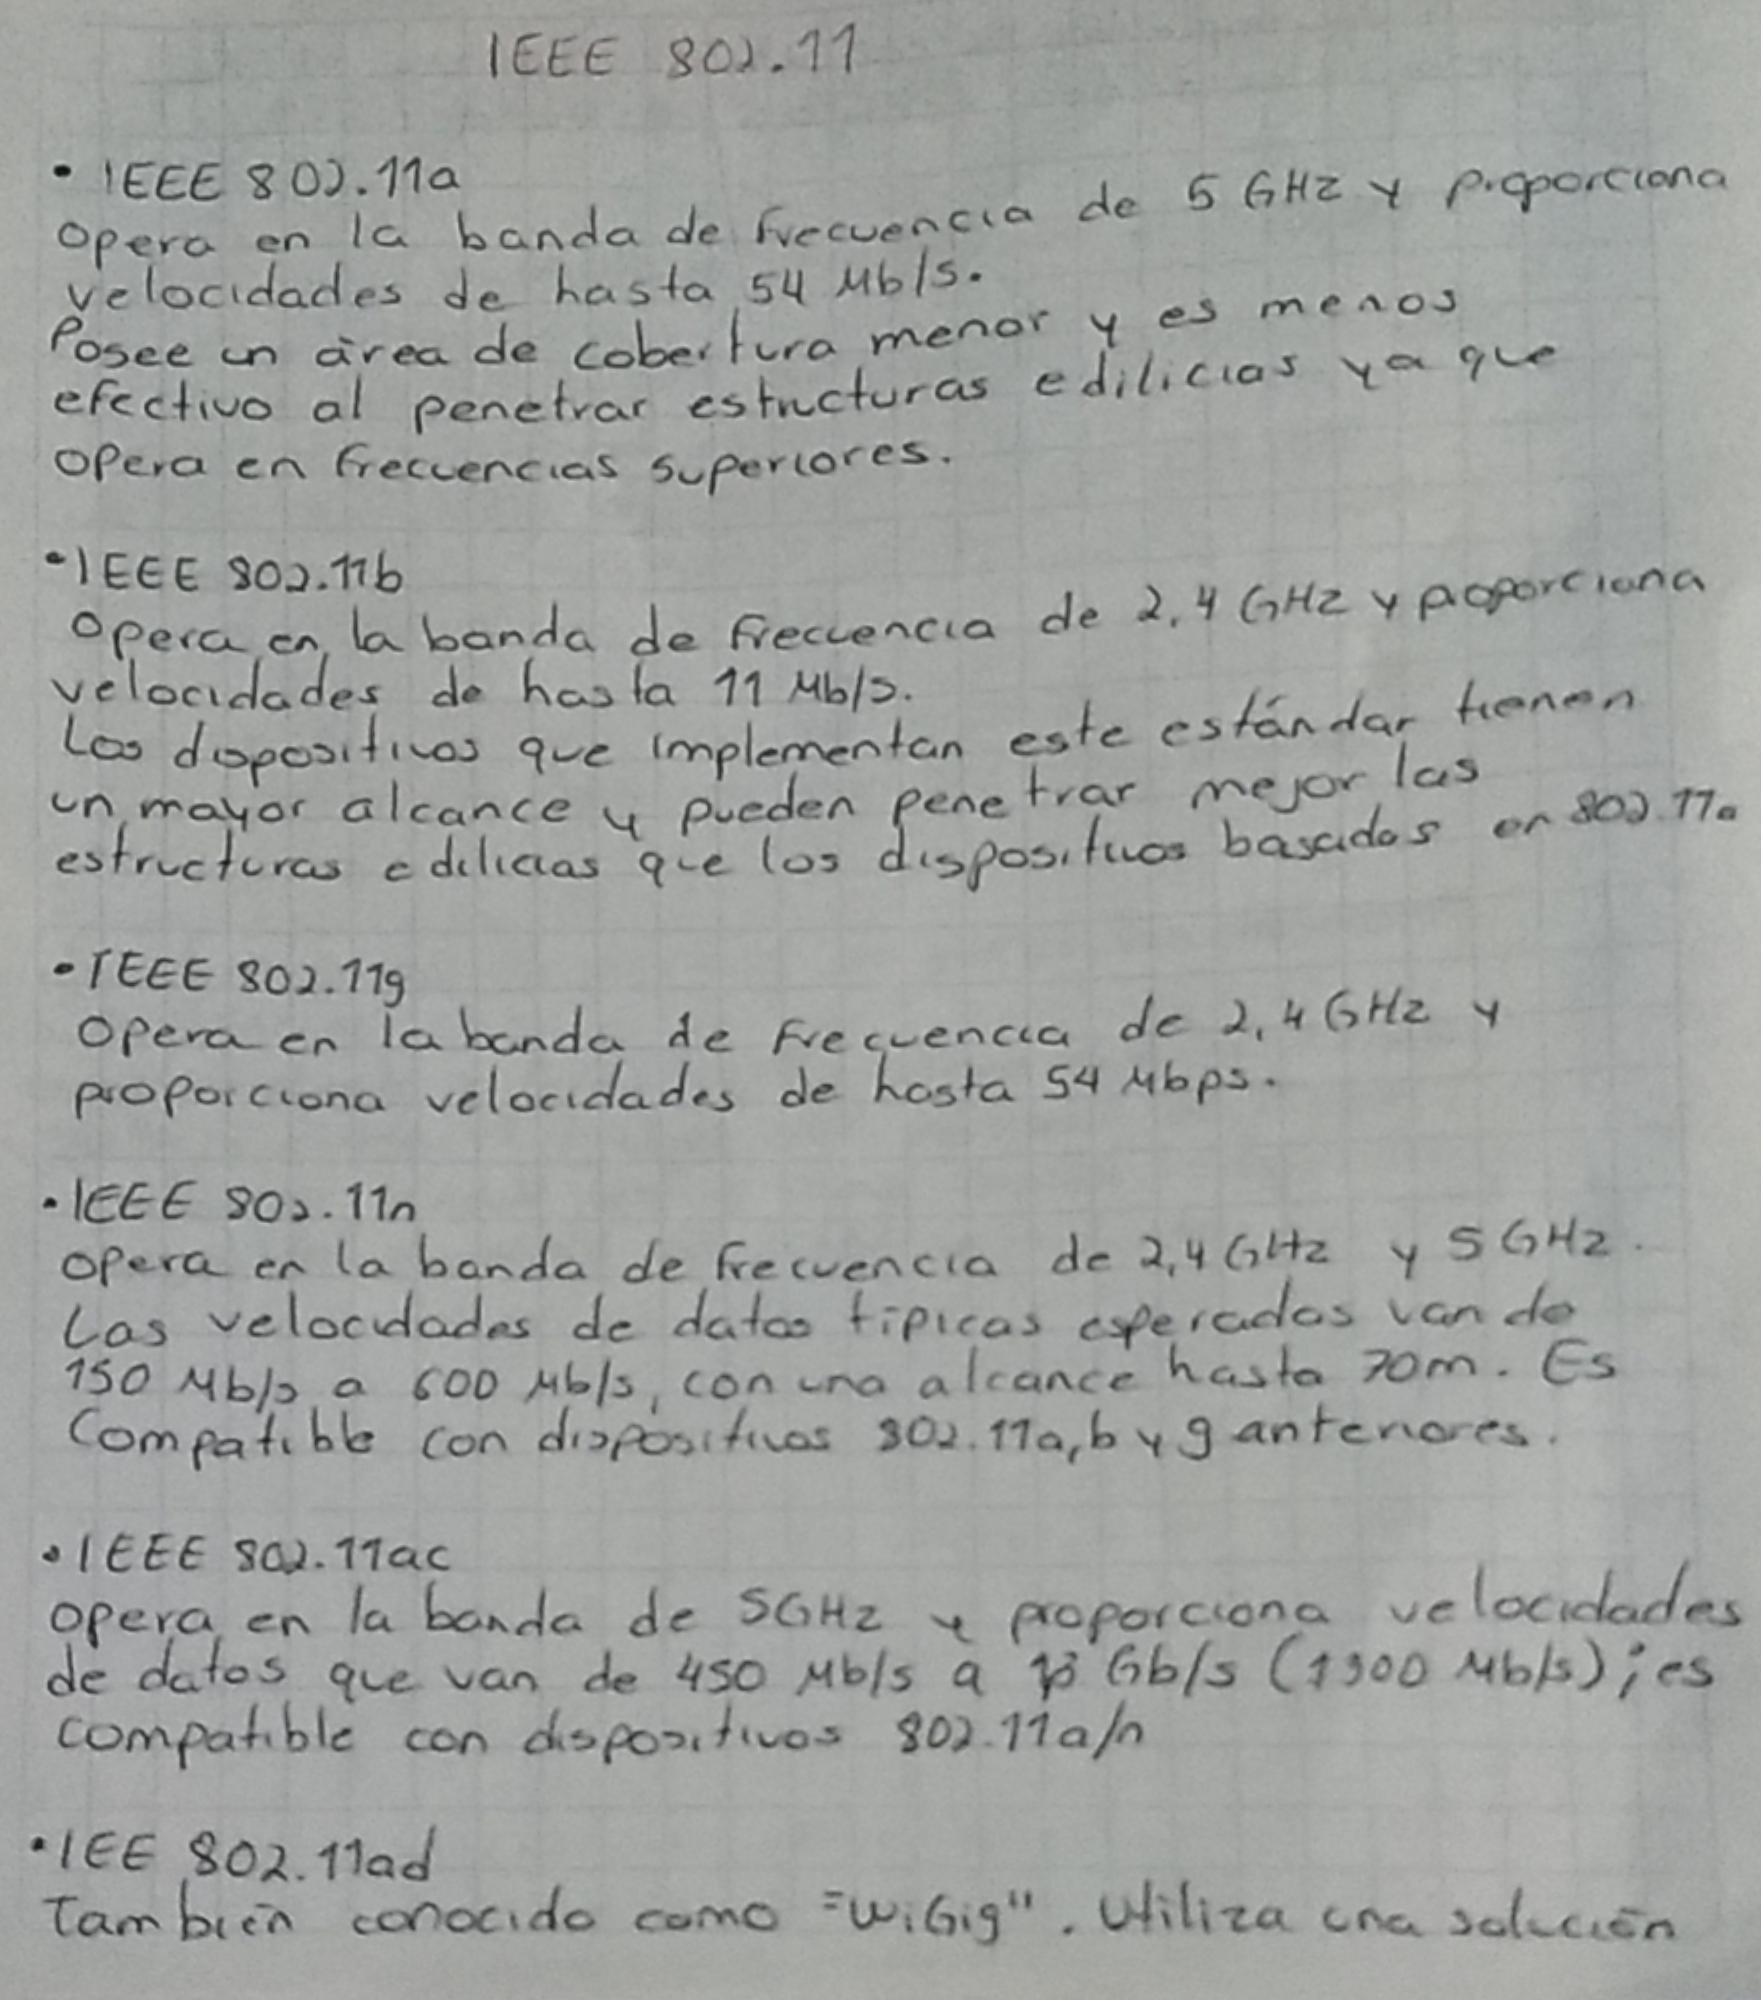 IEEE 802.11
• IEEE 802.11a
Opera en la banda de frecuencia de 5 GHz y proporciona
velocidades de hasta 54 Mb/s.
Posee un área de cobertura menor y es menos
efectivo al penetrar estructuras edilicias ya que
opera en frecuencias superiores.
• IEEE 802.11b
Opera en la banda de frecuencia de 2,4 GHz y proporciona
velocidades de hasta 11 Mb/s.
Los dispositivos que implementan este estándar tienen
un mayor alcance y pueden penetrar mejor las
estructuras edilicias que los dispositivos basados en 802.11a
• IEEE 802.11g
Opera en la banda de frecuencia de 2,4 GHz y
proporciona velocidades de hasta 54 Mbps.
• IEEE 802.11n
Opera en la banda de frecuencia de 2,4 GHz y 5 GHz.
Las velocidades de datos típicas esperadas van de
150 Mb/s a 600 Mb/s, con una alcance hasta 70m. Es
Compatible con dispositivos 802.11a, b y g anteriores.
• IEEE 802.11ac
Opera en la banda de 5GHz y proporciona velocidades
de datos que van de 450 Mb/s a Gb/s (1300 Mb/s); es
compatible con dispositivos 802.11a/n
• IEE 802.11ad
También conocido como "WiGig". Utiliza una solución